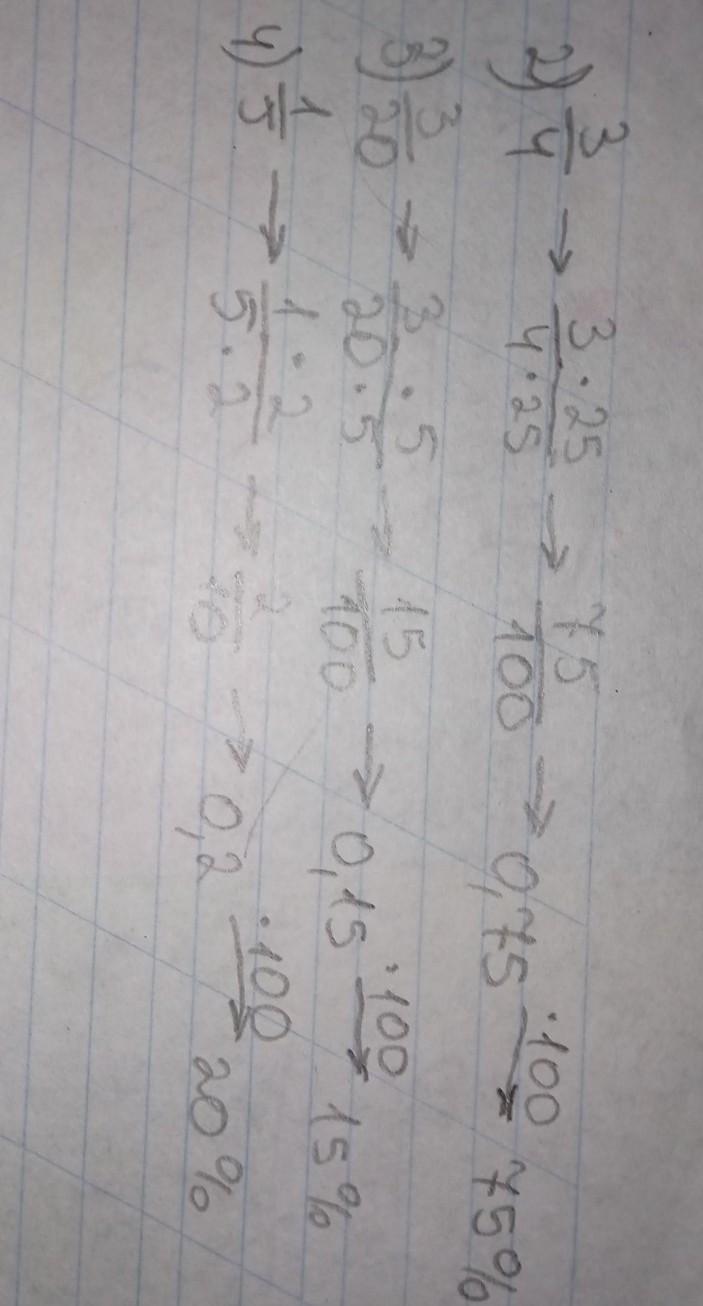 2) 3/4 → 3·25/4·25 → 75/100 → 0,75 ·100→ 75%
3) 3/20 → 3·5/20·5 → 15/100 → 0,15 ·100→ 15%
4) 1/5 → 1·2/5·2 → 2/10 → 0,2 ·100→ 20%